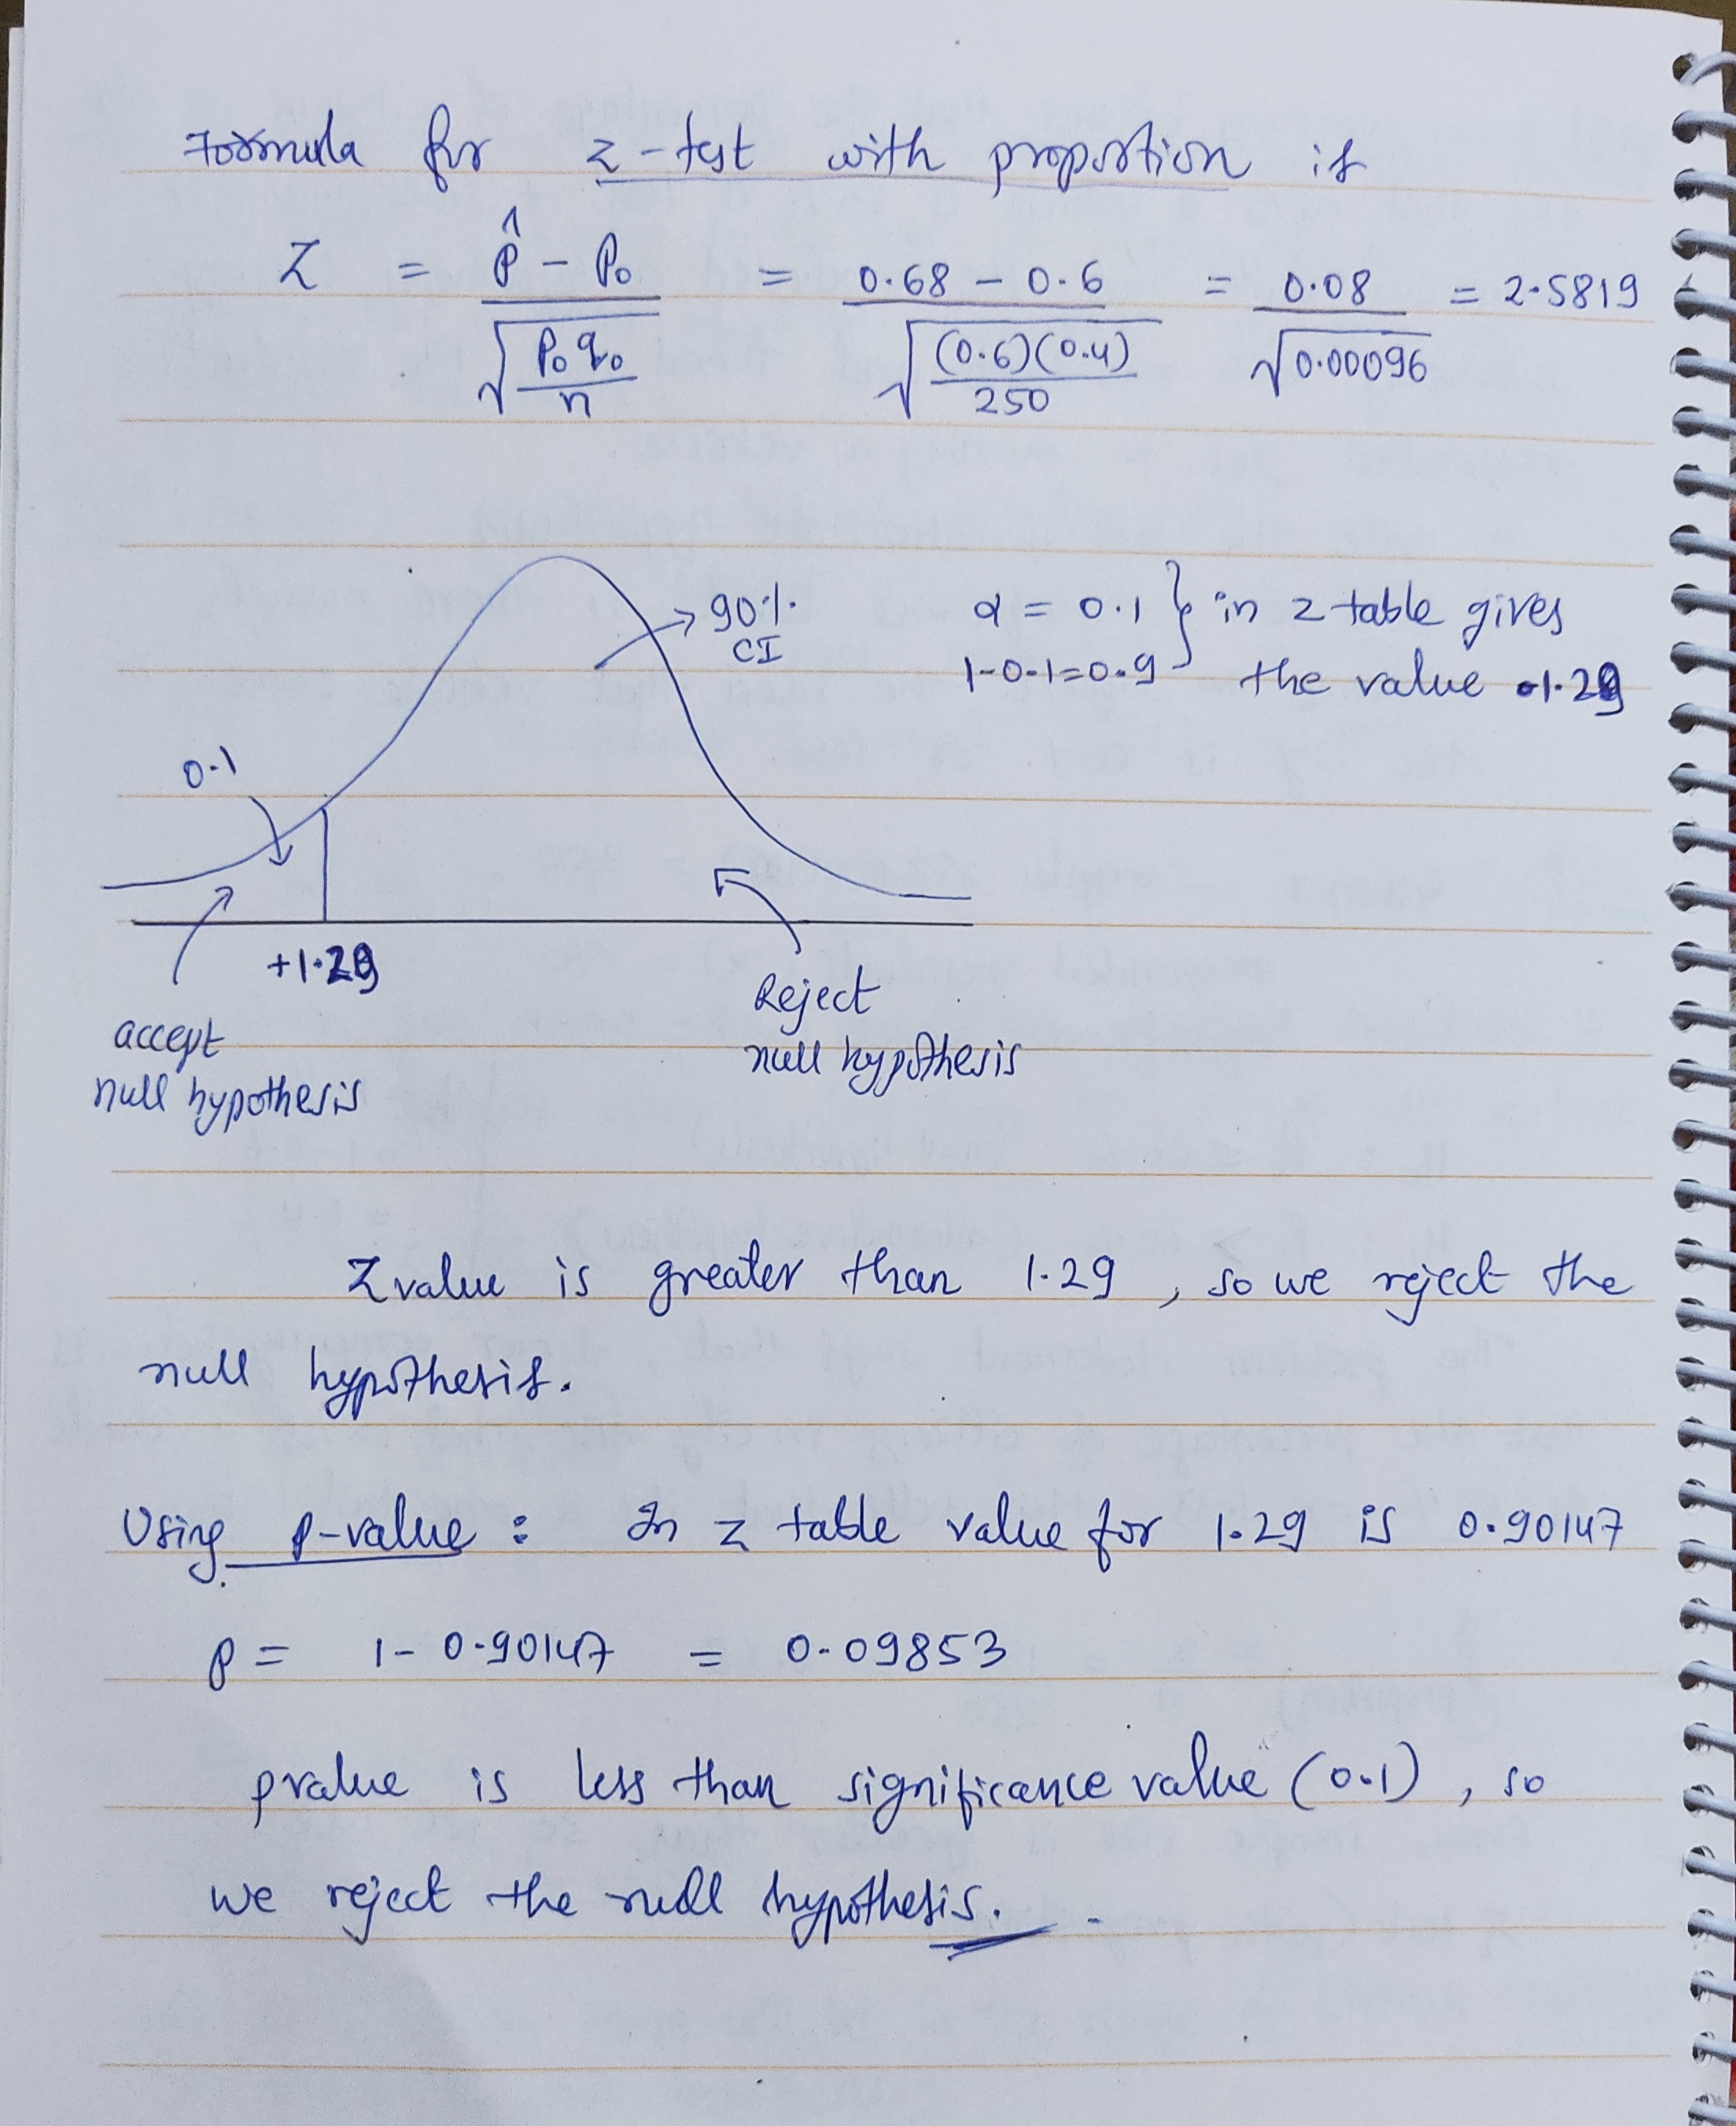 Formula for z-test with proportion is
Z = p̂ - P₀ / √(P₀ q₀ / n) = 0.68 - 0.6 / √((0.6)(0.4) / 250) = 0.08 / √0.00096 = 2.5819
90% CI
α = 0.1 } in z table gives
1-0.1=0.9 the value 1.29
0.1
+1.29
accept
null hypothesis
Reject
null hypothesis
Z value is greater than 1.29, so we reject the
null hypothesis.
Using p-value : In z table value for 1.29 is 0.90147
p = 1 - 0.90147 = 0.09853
pvalue is less than significance value (0.1), so
we reject the null hypothesis.